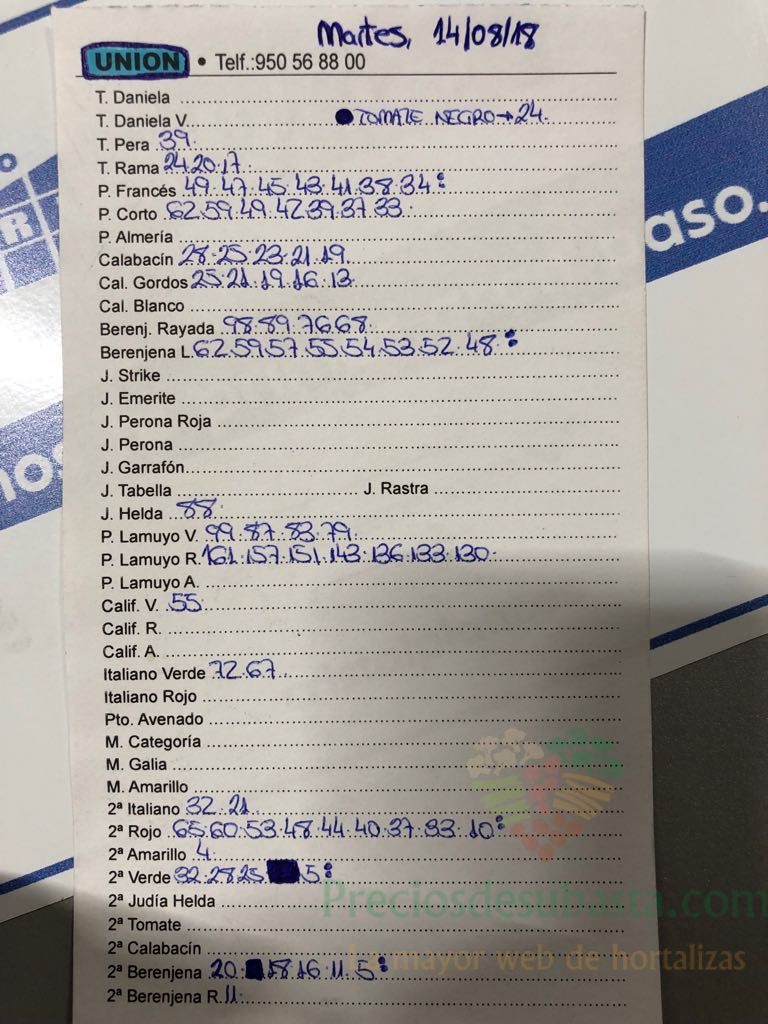 Martes, 14/08/18
UNION • Telf.:950 56 88 00
T. Daniela
T. Daniela V. TOMATE NEGRO→24
T. Pera 39
T. Rama 24.20.17
P. Francés 49.47.45.43.41.38.34
P. Corto 62.59.49.42.39.37.33
P. Almería
Calabacín 28.25.23.21.19
Cal. Gordos 25.21.19.16.13
Cal. Blanco
Berenj. Rayada 98.89.76.68
Berenjena L. 62.59.57.55.54.53.52.48
J. Strike
J. Emerite
J. Perona Roja
J. Perona
J. Garrafón
J. Tabella J. Rastra
J. Helda 88
P. Lamuyo V. 99.87.83.79
P. Lamuyo R. 161.157.151.143.136.133.130
P. Lamuyo A.
Calif. V. 55
Calif. R.
Calif. A.
Italiano Verde 72.67
Italiano Rojo
Pto. Avenado
M. Categoría
M. Galia
M. Amarillo
2ª Italiano 32.21
2ª Rojo 65.60.53.48.44.40.37.33.10
2ª Amarillo 4
2ª Verde 32.28.25 5
2ª Judía Helda
2ª Tomate
2ª Calabacín
2ª Berenjena 20. 18.16.11.5
2ª Berenjena R. 11
Preciosdesubasta.com
La mayor web de hortalizas
aso.
nos
R